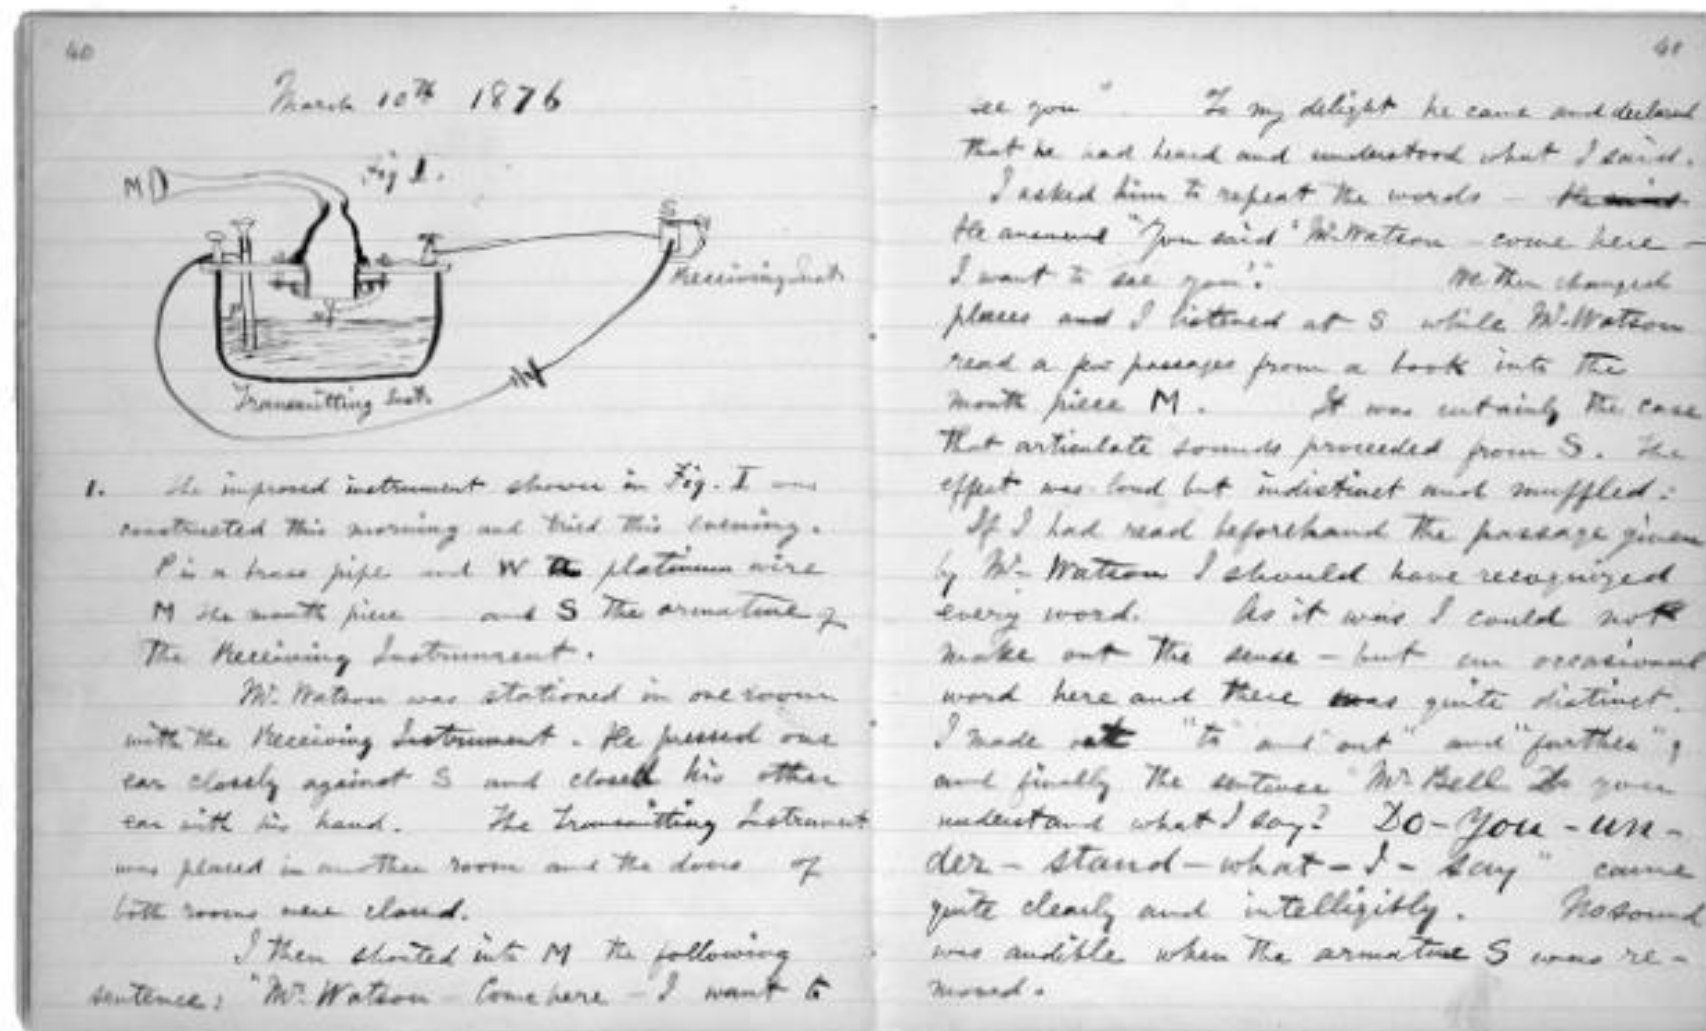 40
March 10th 1876
Fig I.
M
S
Receiving Inst.
P
W
Transmitting Inst.
1. The improved instrument shown in Fig. I was
constructed this morning and tried this evening.
P is a brass pipe and W a platinum wire
M the mouth piece and S the armature of
the Receiving Instrument.
Mr. Watson was stationed in one room
with the Receiving Instrument. He pressed one
ear closely against S and closed his other
ear with his hand. The Transmitting Instrument
was placed in another room and the doors of
both rooms were closed.
I then shouted into M the following
sentence: "Mr. Watson - Come here - I want to
41
see you" To my delight he came and declared
that he had heard and understood what I said.
I asked him to repeat the words -
He answered "You said 'Mr. Watson - come here -
I want to see you'." We then changed
places and I listened at S while Mr. Watson
read a few passages from a book into the
mouth piece M. It was certainly the case
that articulate sounds proceeded from S. The
effect was loud but indistinct and muffled.
If I had read beforehand the passage given
by Mr. Watson I should have recognized
every word. As it was I could not
make out the sense - but an occasional
word here and there was quite distinct.
I made out "to" and "out" and "further";
and finally the sentence "Mr Bell Do you
understand what I say? Do - you - un -
der - stand - what - I - say" came
quite clearly and intelligibly. No sound
was audible when the armature S was re -
moved.